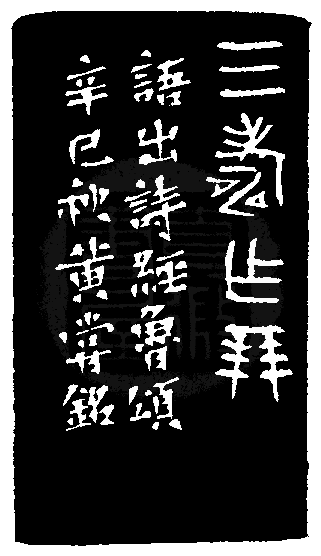 三壽乍朋
語出詩經魯頌
辛巳秋黃嘗銘